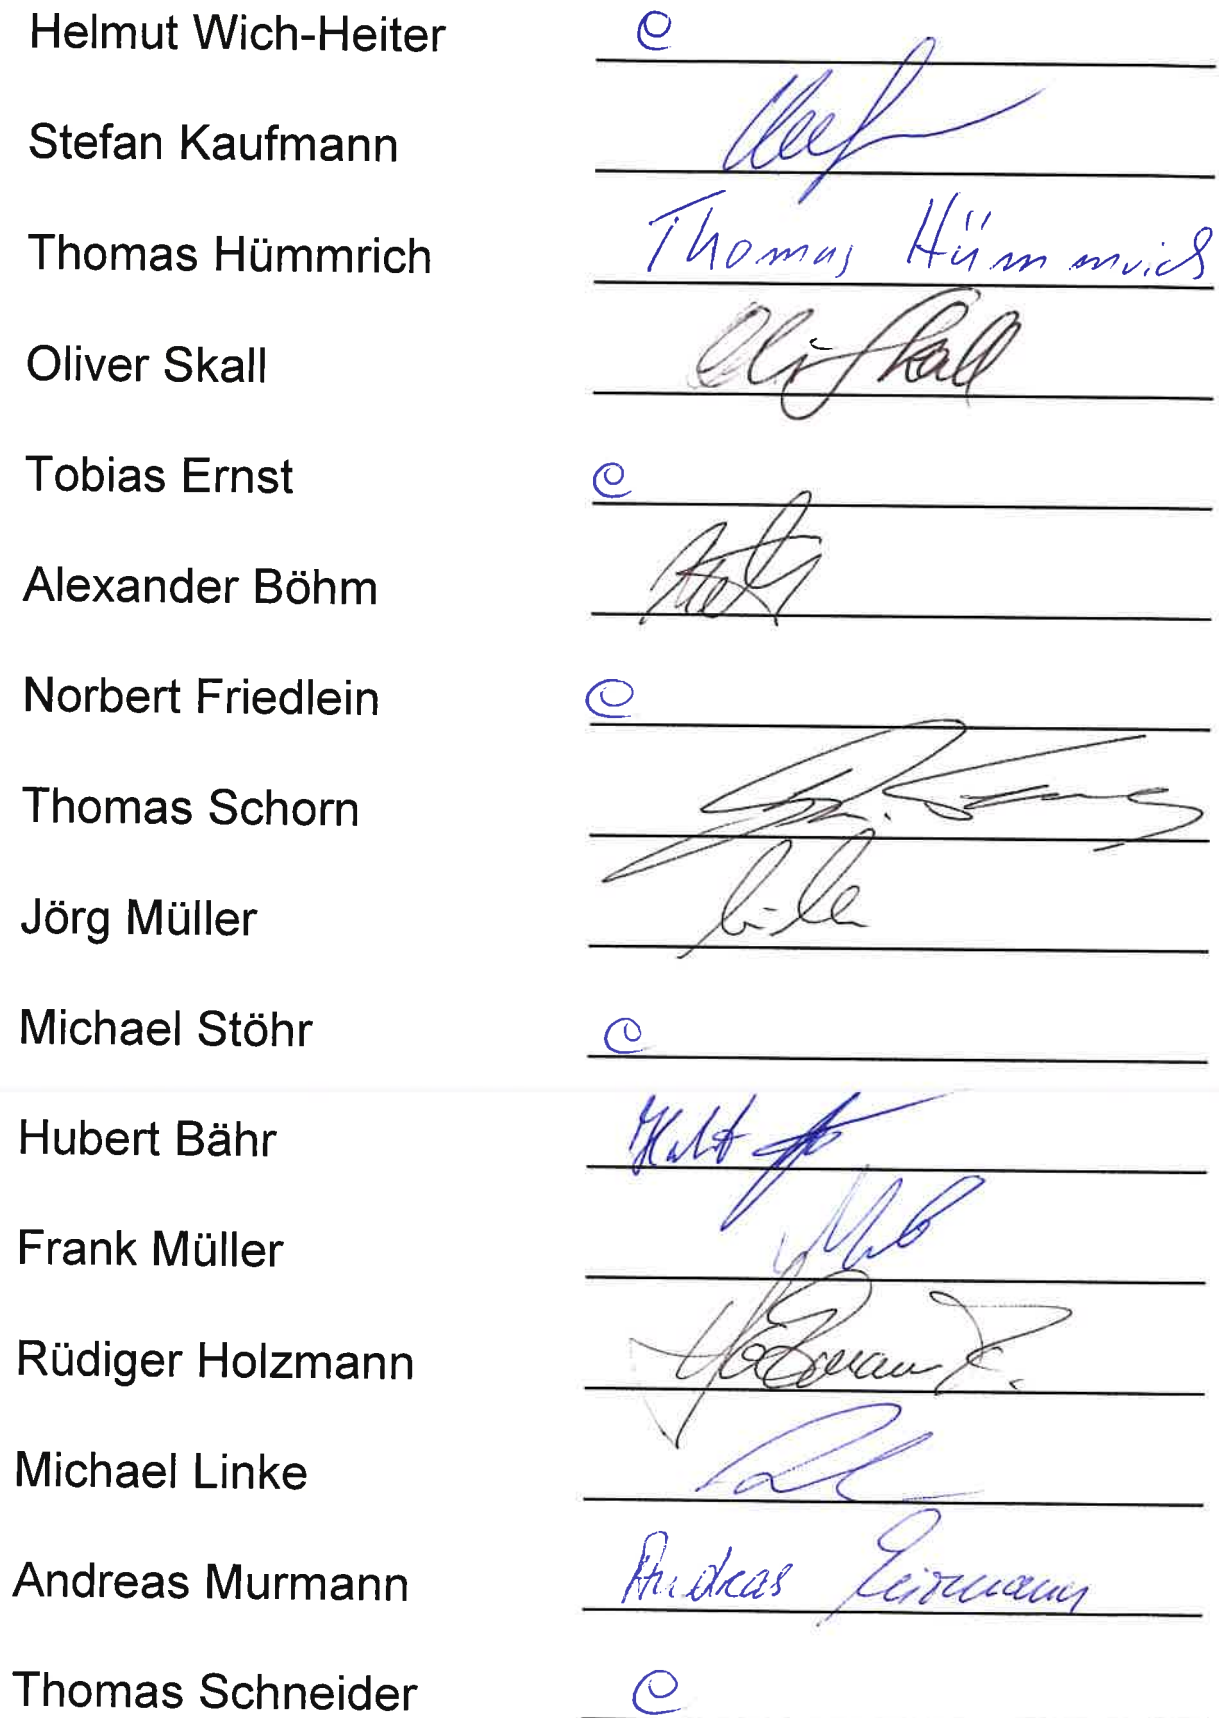 Helmut Wich-Heiter
Stefan Kaufmann
Thomas Hümmrich Thomas Hümmrich
Oliver Skall Oli Skall
Tobias Ernst
Alexander Böhm
Norbert Friedlein
Thomas Schorn
Jörg Müller
Michael Stöhr
Hubert Bähr
Frank Müller
Rüdiger Holzmann
Michael Linke
Andreas Murmann Andreas Murmann
Thomas Schneider